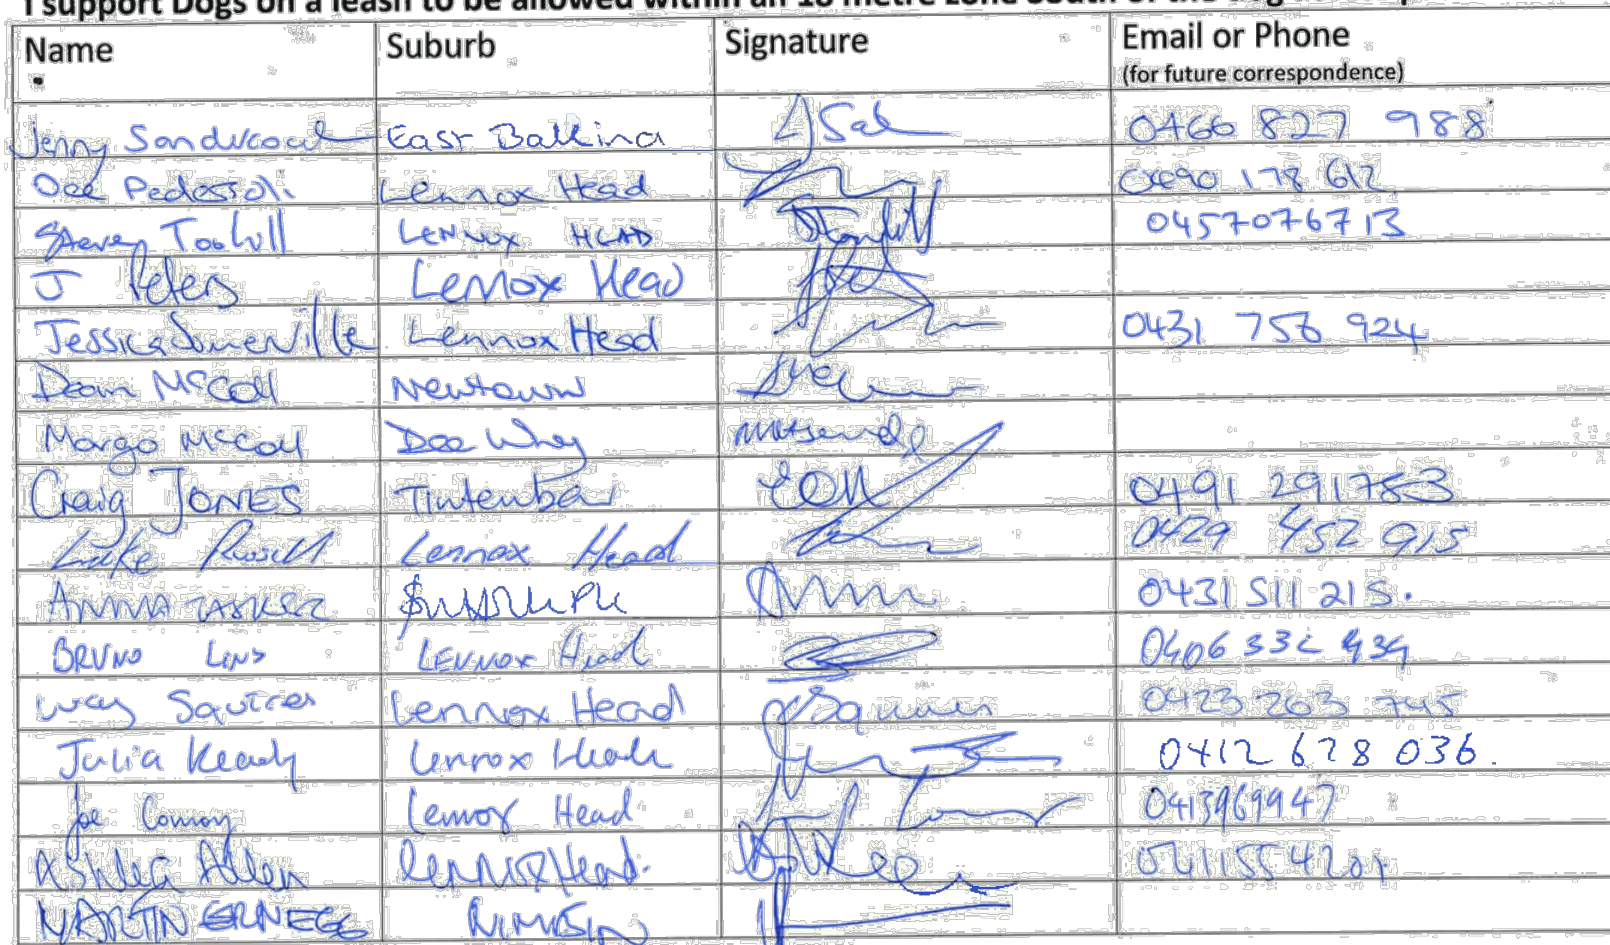 I support Dogs on a leash to be allowed within an 18 metre zone South of the
Name Suburb Signature Email or Phone
(for future correspondence)
Jenny Sandercock East Ballina 0466 827 988
Dee Pedersoli Lennox Head 0490 178 612
Steven Toohill LENNOX HEAD 0457076713
J Peters Lennox Head
Jessica Somerville Lennox Head 0431 756 924
Dean McColl Newtown
Margo McColl Dee Why
Craig JONES Tintenbar 0491 291753
Luke Russell Lennox Head 0429 452 915
ANNA 0431 511 215.
BRUNO LINS LENNOX Head 0406 332 939
Lucy Squires Lennox Head 0423 263 745
Julia Keady Lennox Head 0412 678 036.
Joe Conroy Lennox Head 0413969947
Ashlea Allen Lennox Head. 0411554201
MARTIN